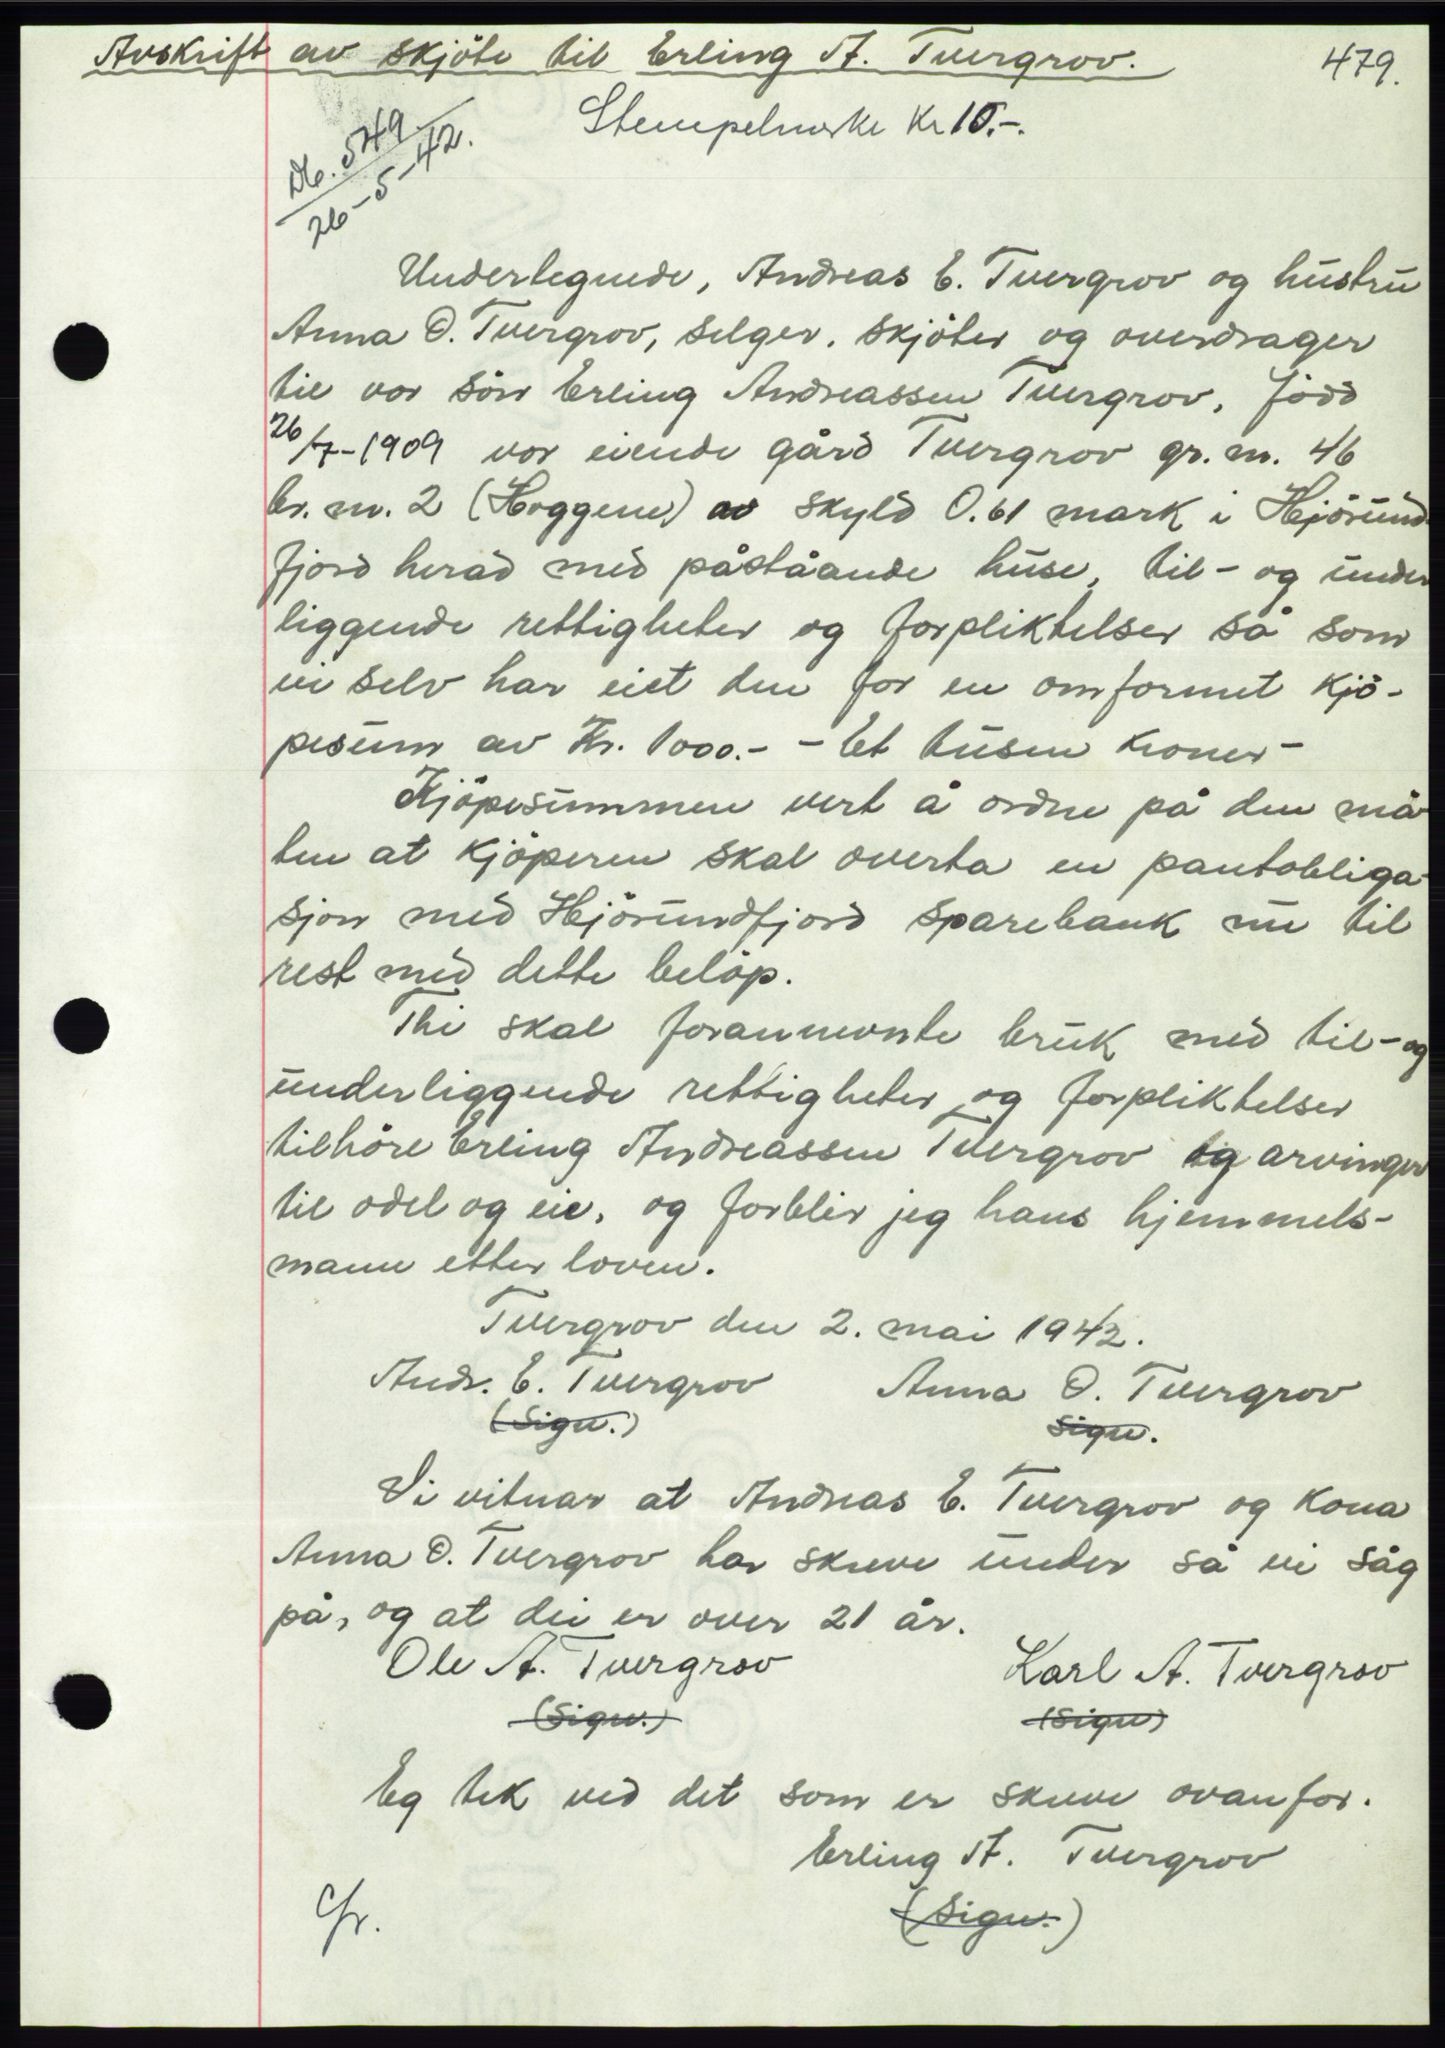 Avskrift av skjöte til Erling A. Tvergrov.
479.
Stempelmerke Kr 10.-.
Db. 549
26-5-42.
Undertegnede, Andreas E. Tvergrov og hustru
Anna O. Tvergrov, selger, skjöter og overdrager
til vor sön Erling Andreassen Tvergrov, född
26/7-1909 vor eiende gård Tvergrov gr. nr. 46
br. nr. 2 (Hoggene) av skyld 0.61 mark i Hjörund
fjord herad med påståande huse, til- og under
liggende rettigheter og forpliktelser så som
vi selv har eiet den for en omforenet kjö-
pesum av Kr. 1000.- - Et tusen kroner -
Kjöpesummen vert å ordne på den må
ten at kjöperen skal overta en pantobliga-
sjon med Hjörundfjord sparebank nu til
rest med dette belöp.
Thi skal forannevnte bruk med til- og
underliggende rettigheter og forpliktelser
tilhöre Erling Andreassen Tvergrov og arvinger
til odel og eie, og forblir jeg hans hjemmels-
mann etter loven.
Tvergrov den 2. mai 1942.
Andr. E. Tvergrov Anna O. Tvergrov
(Sign.) Sign.
Vi vitnar at Andreas E. Tvergrov og kona
Anna O. Tvergrov har skreve under så vi såg
på, og at dei er over 21 år.
Ole A. Tvergrov Karl A. Tvergrov
(Sign.) (Sign)
Eg tek ved det som er skreve ovanfor.
Erling A. Tvergrov
(Sign.)